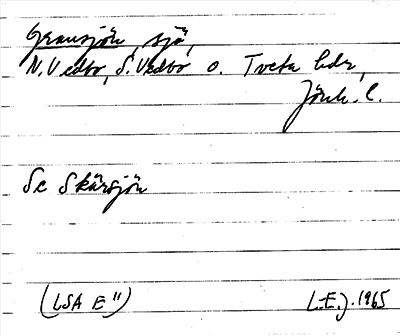 Gransjön, sjö,
N. Vedbo, S. Vedbo o. Tveta hdr,
Jönk. l.
Se Skärsjön
(LSA E")
L.E.J. 1965